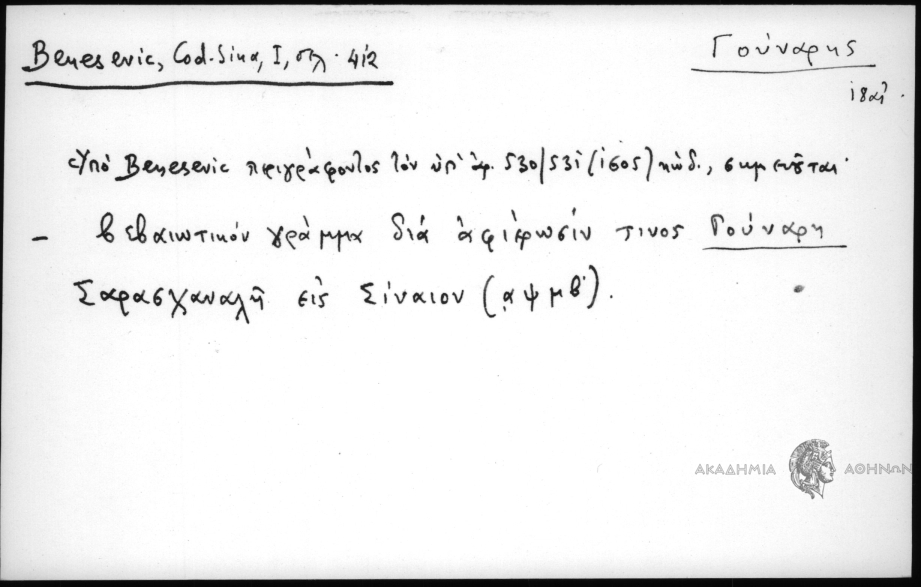 Benesevic, Cod. Sina, I, σελ. 412
Γούναρης
18 αἰ.
Ὑπό Benesevic περιγράφοντος τόν ὑπ' ἀρ. 530/531 (ἰσος) κώδ., σημειοῦται·
– βεβαιωτικόν γράμμα διά ἀφιέρωσίν τινος Γούναρη
Σαρασχαναλῆ εἰς Σίναιον (͵αψμβ').
ΑΚΑΔΗΜΙΑ ΑΘΗΝΩΝ